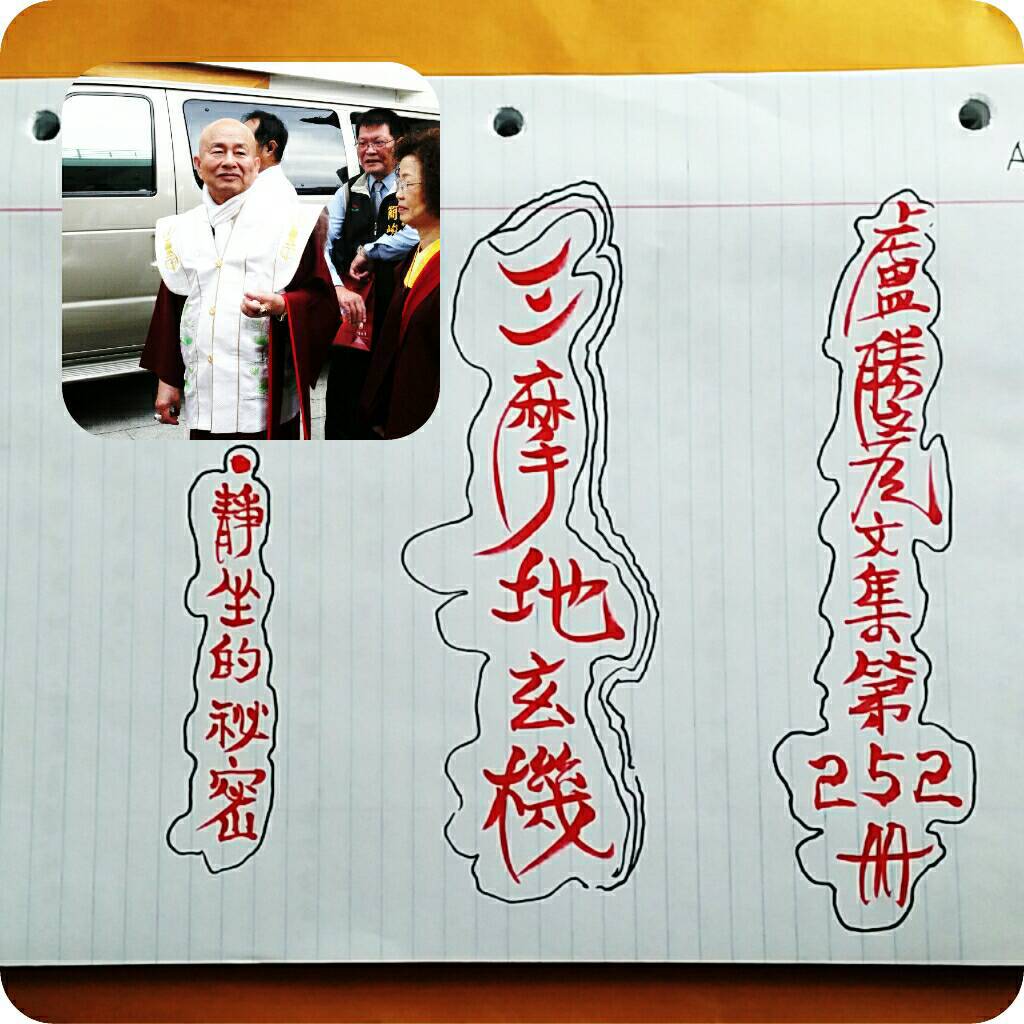 盧勝彥文集第252冊
三摩地玄機
•靜坐的祕密
簡
A